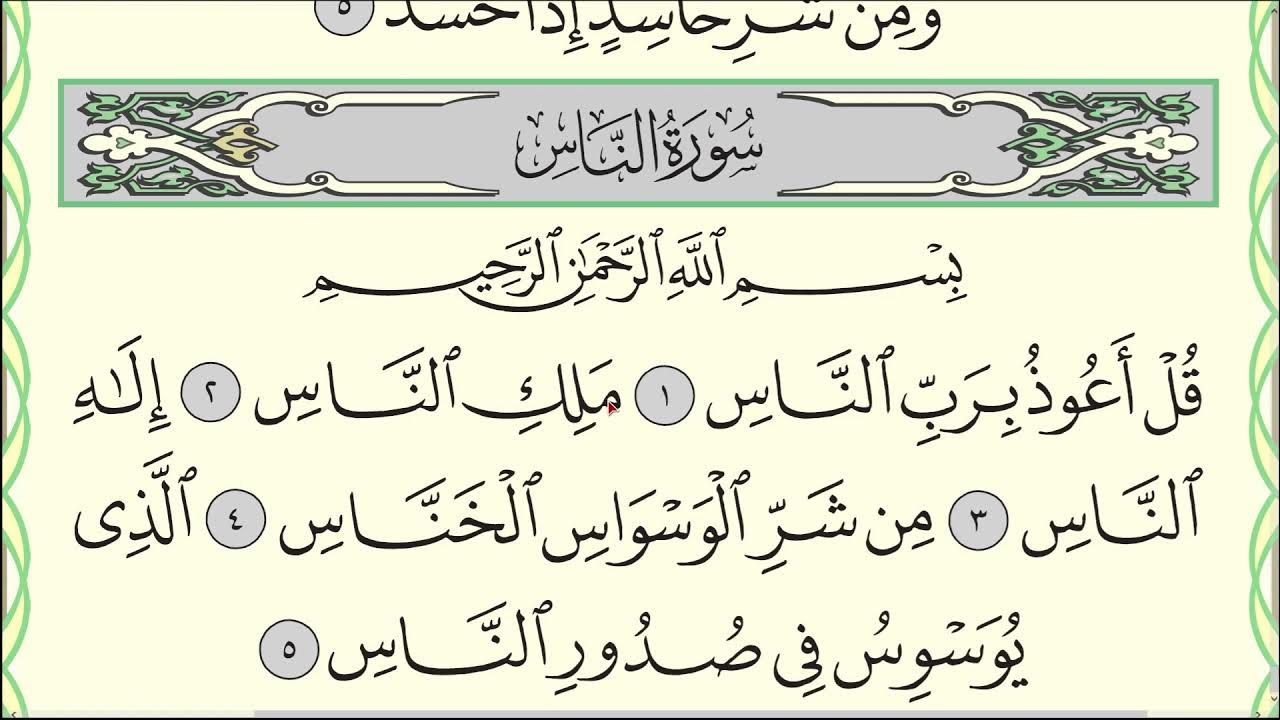 وَمِن شَرِّ حَاسِدٍ إِذَا حَسَدَ ٥
سُورَةُ النَّاسِ
بِسْمِ ٱللَّهِ ٱلرَّحْمَٰنِ ٱلرَّحِيمِ
قُلْ أَعُوذُ بِرَبِّ ٱلنَّاسِ ١ مَلِكِ ٱلنَّاسِ ٢ إِلَٰهِ
ٱلنَّاسِ ٣ مِن شَرِّ ٱلْوَسْوَاسِ ٱلْخَنَّاسِ ٤ ٱلَّذِى
يُوَسْوِسُ فِى صُدُورِ ٱلنَّاسِ ٥